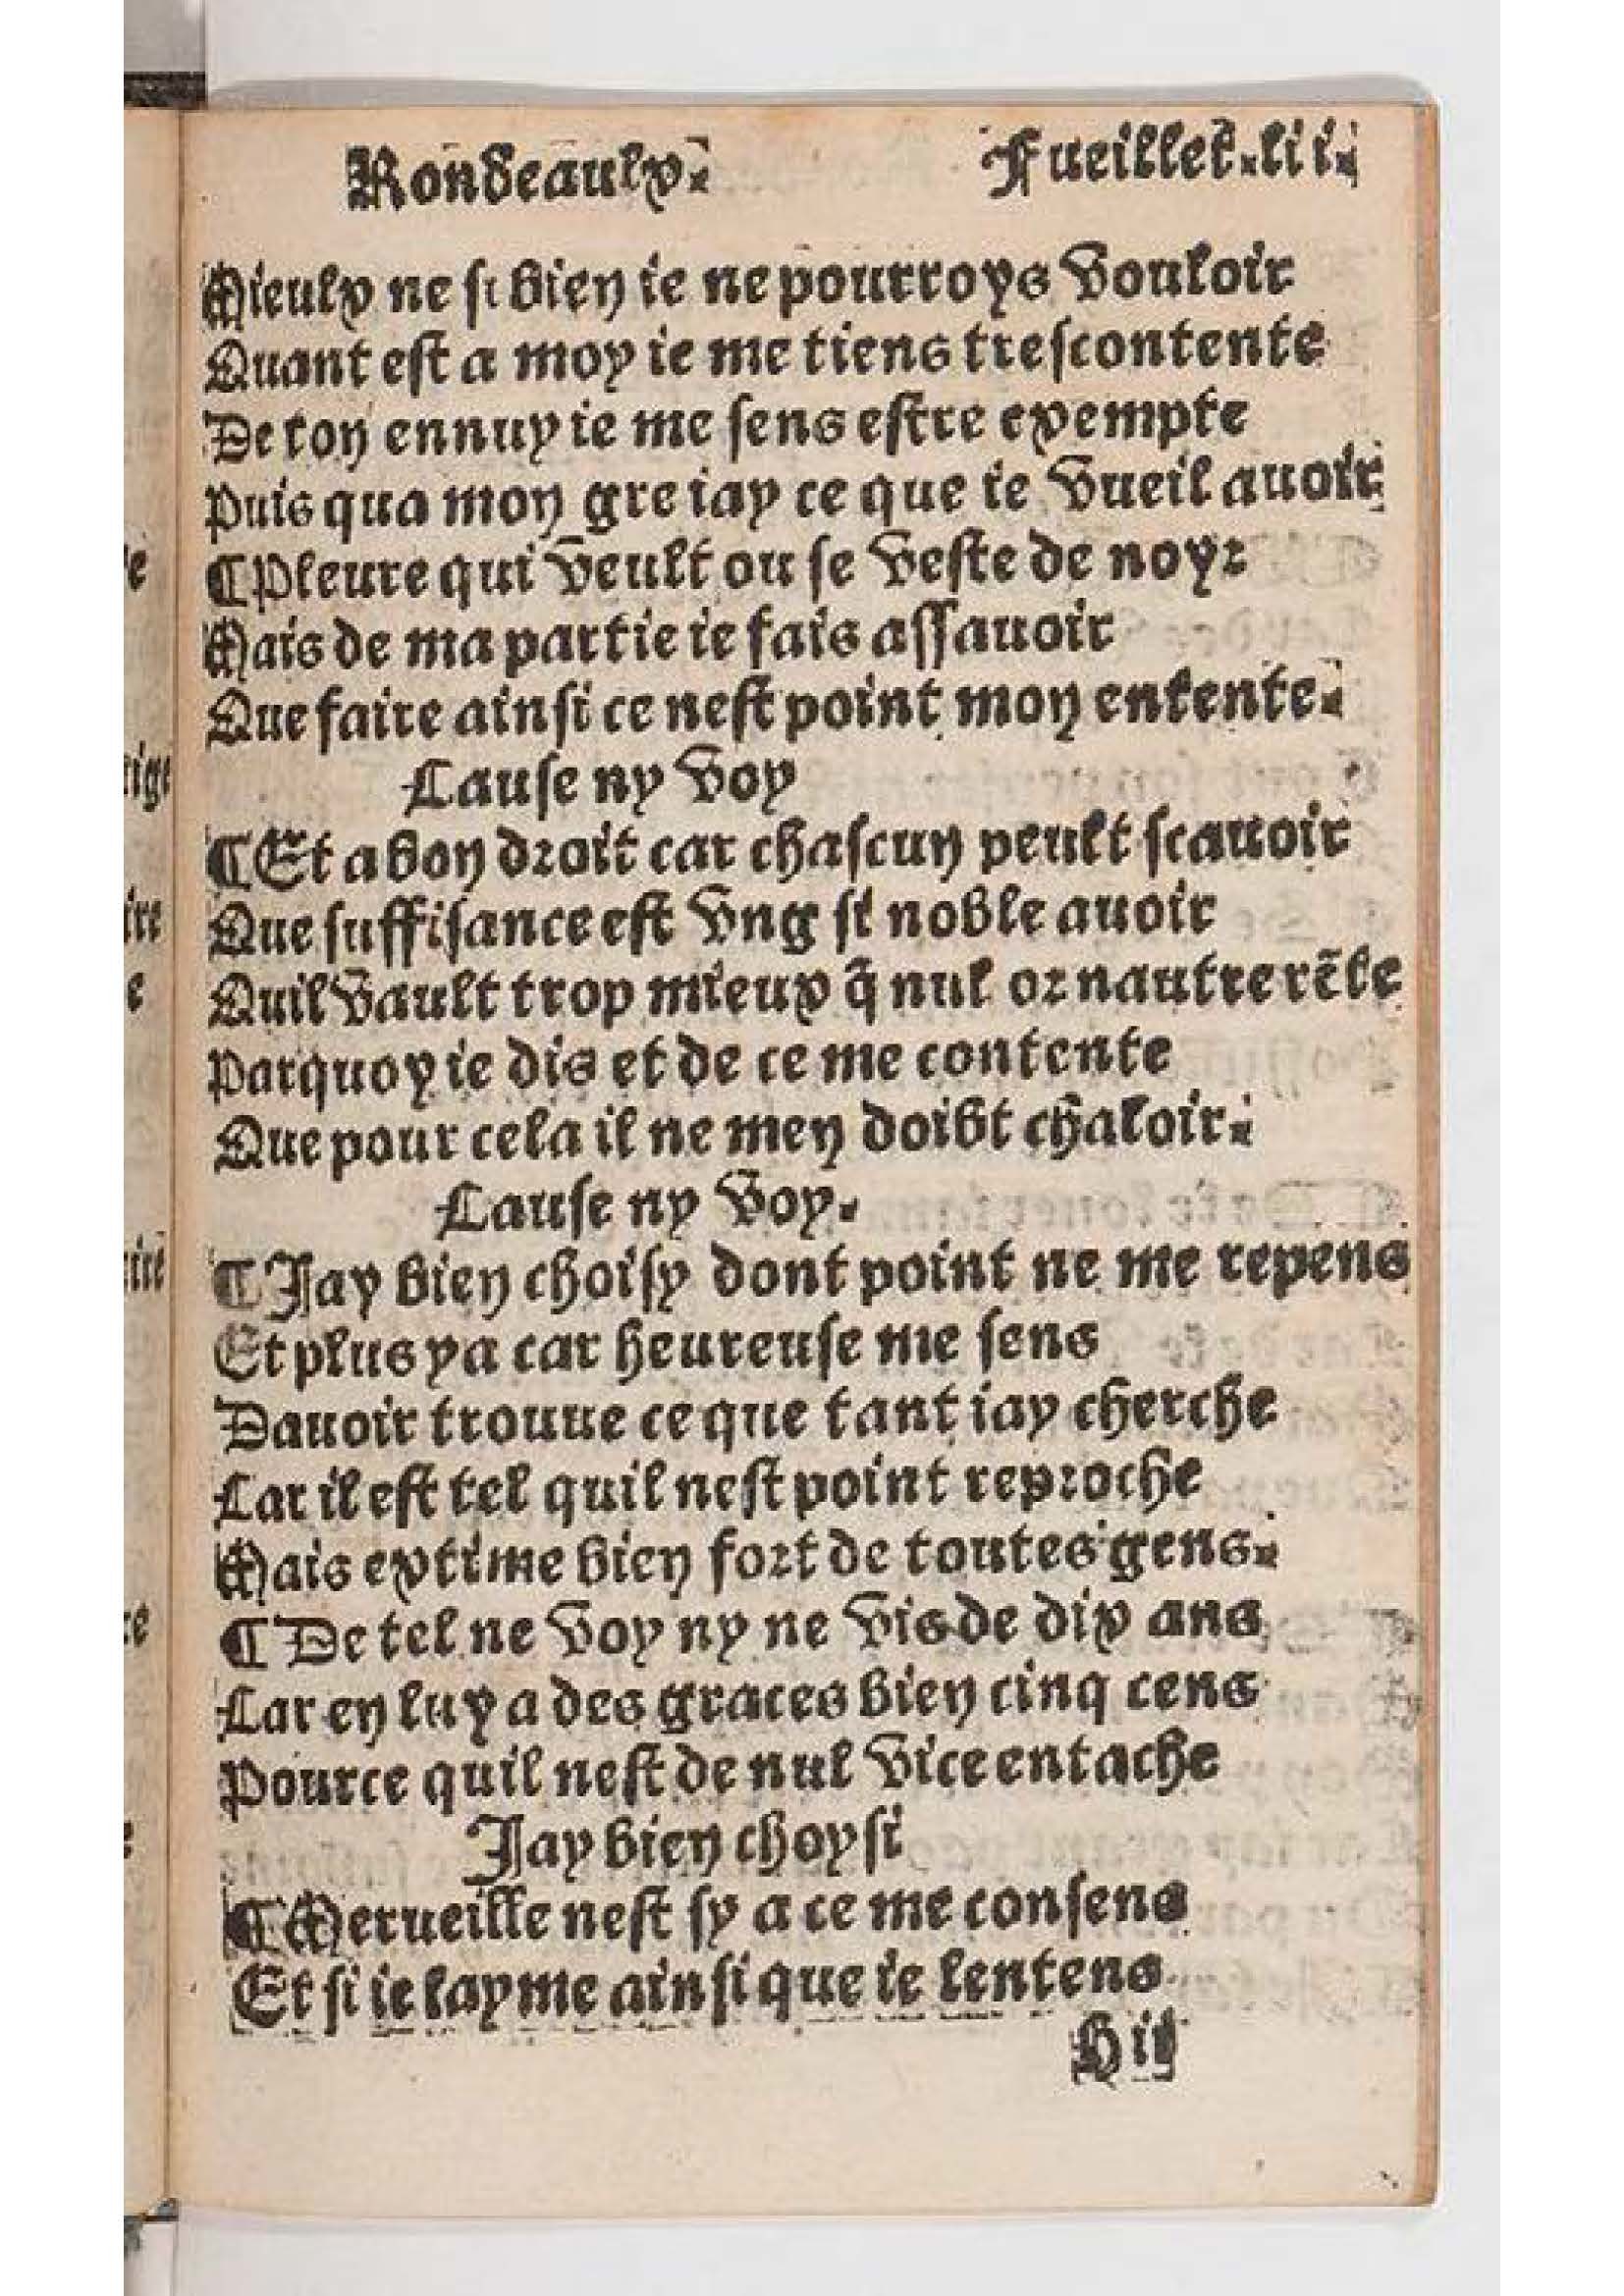 Rondeaulx. Fueillet.lii.
Mieulx ne si bien ie ne pourroys vouloir
Quant est a moy ie me tiens trescontente
De ton ennuy ie me sens estre exempte
Puis qua mon gre iay ce que ie vueil auoir
¶Pleure qui veult ou se veste de noyr
Mais de ma partie ie fais assauoir
Que faire ainsi ce nest point mon entente.
Cause ny voy
¶Et a bon droit car chascun peult scauoir
Que suffisance est vng si noble auoir
Quil vault trop mieux q̃ nul or nautre rẽte
Parquoy ie dis et de ce me contente
Que pour cela il ne men doibt chaloir.
Cause ny voy.
¶Jay bien choisy dont point ne me repens
Et plus ya car heureuse me sens
Dauoir trouue ce que tant iay cherche
Car il est tel quil nest point reproche
Mais extime bien fort de toutes gens.
¶De tel ne voy ny ne vis de dix ans
Car en luy a des graces bien cinq cens
Pource quil nest de nul vice entache
Jay bien choysi
¶Merueille nest sy a ce me consens
Et si ie layme ainsi que ie lentens